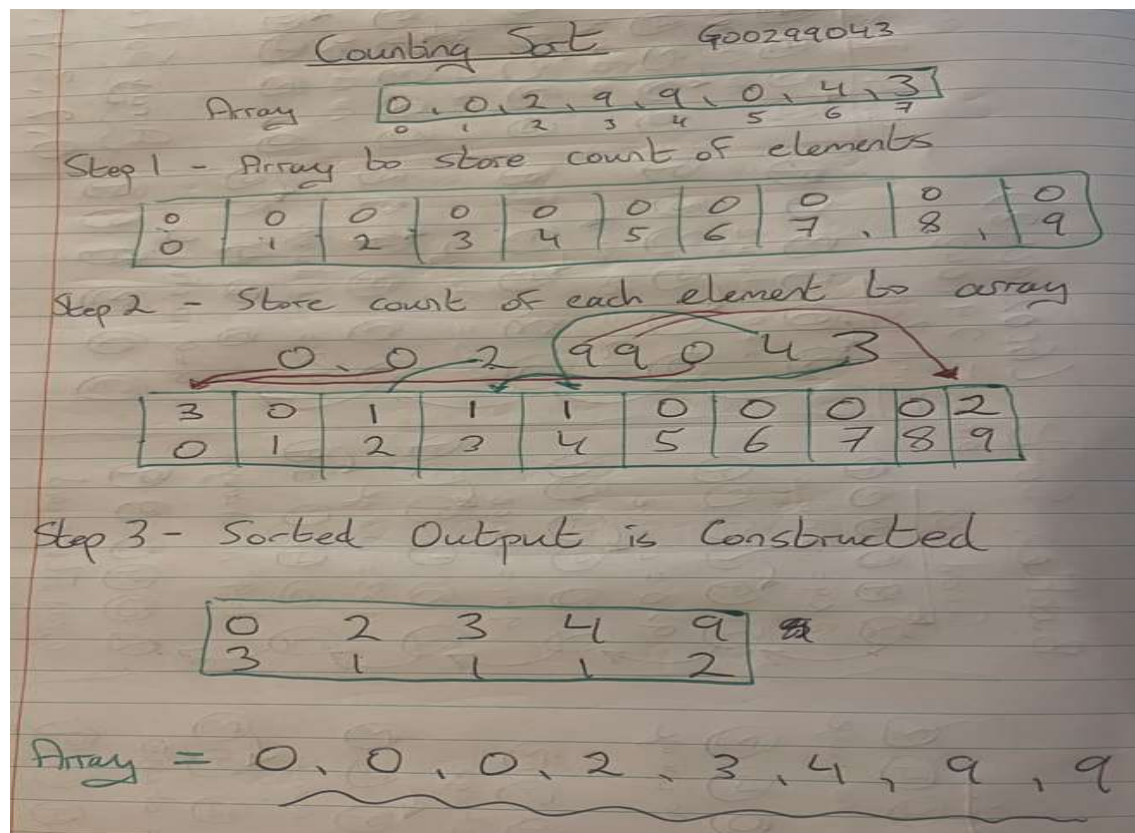 Counting Sort G00299043
Array 0, 0, 2, 9, 9, 0, 4, 3
0 1 2 3 4 5 6 7
Step 1 - Array to store count of elements
0 0 0 0 0 0 0 0 0 0
0 1 2 3 4 5 6 7 8 9
Step 2 - Store count of each element to array
0, 0 2 9 9 0 4 3
3 0 1 1 1 0 0 0 0 2
0 1 2 3 4 5 6 7 8 9
Step 3 - Sorted Output is Constructed
0 2 3 4 9
3 1 1 1 2
Array = 0, 0, 0, 2, 3, 4, 9, 9